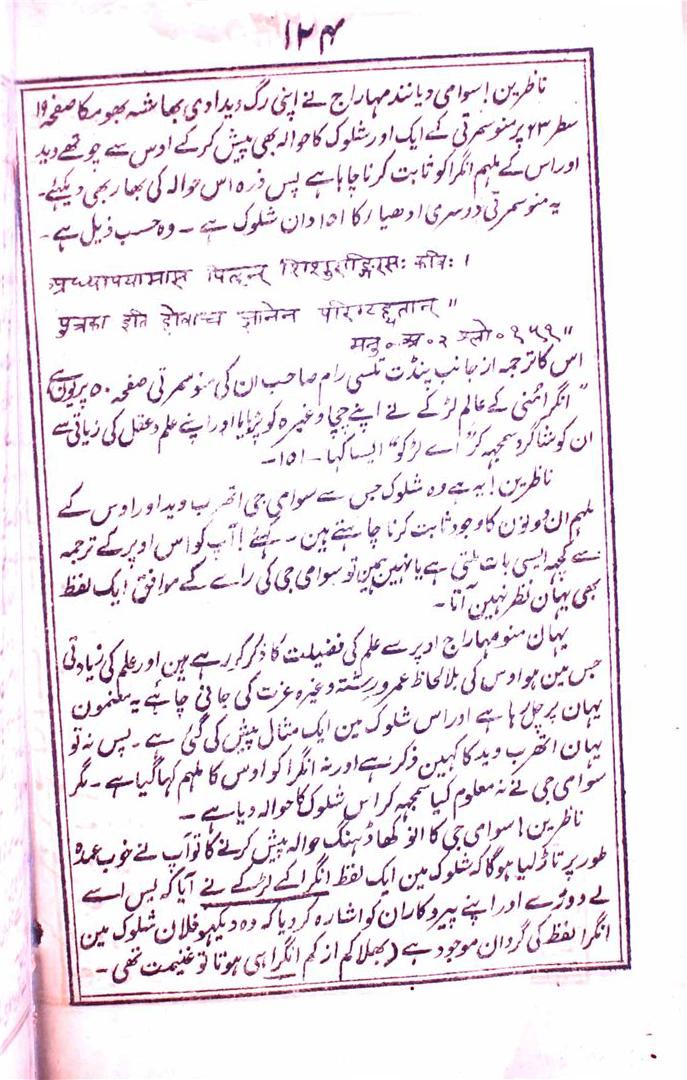 ۱۲۴
ناظرین! سوامی دیانند مہاراج نے اپنی رگ ویدادی بھاشیہ بھومکا صفحہ ۱۹
سطر ۲۳ پر منو سمرتی کے ایک اور شلوک کا حوالہ بھی پیش کرکے اوس سے چوتھے وید
اور اس کے ملہم انگرا کو ثابت کرنا چاہا ہے پس ذرہ اس حوالہ کی بھار بھی دیکہئے۔
یہ منو سمرتی دوسری ادھیار کا ۱۵۱ وان شلوک ہے۔ وہ حسب ذیل ہے۔
अध्यापयामास पितॄन् शिशुराङ्गिरसः कविः।
पुत्रका इति होवाच ज्ञानेन परिगृह्यतान्॥
मनु॰ अ॰ २ श्लो॰ १५१॥
اس کا ترجمہ از جانب پنڈت تلسی رام صاحب ان کی منو سمرتی صفحہ ۵۰ پر یون ہے
"انگرا مُنی کے عالم لڑکے نے اپنے چچا وغیرہ کو پڑہایا اور اپنے علم و عقل کی زیاتی سے
ان کو شاگرد سمجہہ کر "اے لڑکو" ایسا کہا۔ ۱۵۱۔
ناظرین! یہ ہے وہ شلوک جس سے سوامی جی اتھرب وید اور اوس کے
ملہم ان دونون کا وجود ثابت کرنا چاہتے ہین۔ کہئے! آپ کو اس اوپر کے ترجمہ
سے کچہہ ایسی بات ملتی ہے یا نہین ہمین تو سوامی جی کی راے کے موافق ایک لفظ
بھی یہان نظر نہین آتا۔
یہان منو مہاراج اوپر سے علم کی فضیلت کا ذکر کر رہے ہین اور علم کی زیادتی
جس مین ہو اوس کی بلا لحاظ عمر و رشتہ وغیرہ عزت کی جانی چاہئے یہ مضمون
یہان پر چل رہا ہے اور اس شلوک مین ایک مثال پیش کی گئی ہے۔ پس نہ تو
یہان اتھرب وید کا کہین ذکر ہے اور نہ انگرا کو اوس کا ملہم کہا گیا ہے۔ مگر
سوامی جی نے نہ معلوم کیا سمجہہ کر اس شلوک کا حوالہ دیا ہے۔
ناظرین! سوامی جی کا انوکھا ڈہنگ حوالہ پیش کرنے کا تو آپ نے خوب عمدہ
طور پر تاڑ لیا ہوگا کہ شلوک مین ایک لفظ انگرا کے لڑکے نے آیا کہ بس اسے
لے دوڑے اور اپنے پیروکاران کو اشارہ کر دیا کہ وہ دیکہو فلان شلوک مین
انگرا لفظ کی گردان موجود ہے (بھلا کم از کم انگرا ہی ہوتا تو غنیمت تھی۔